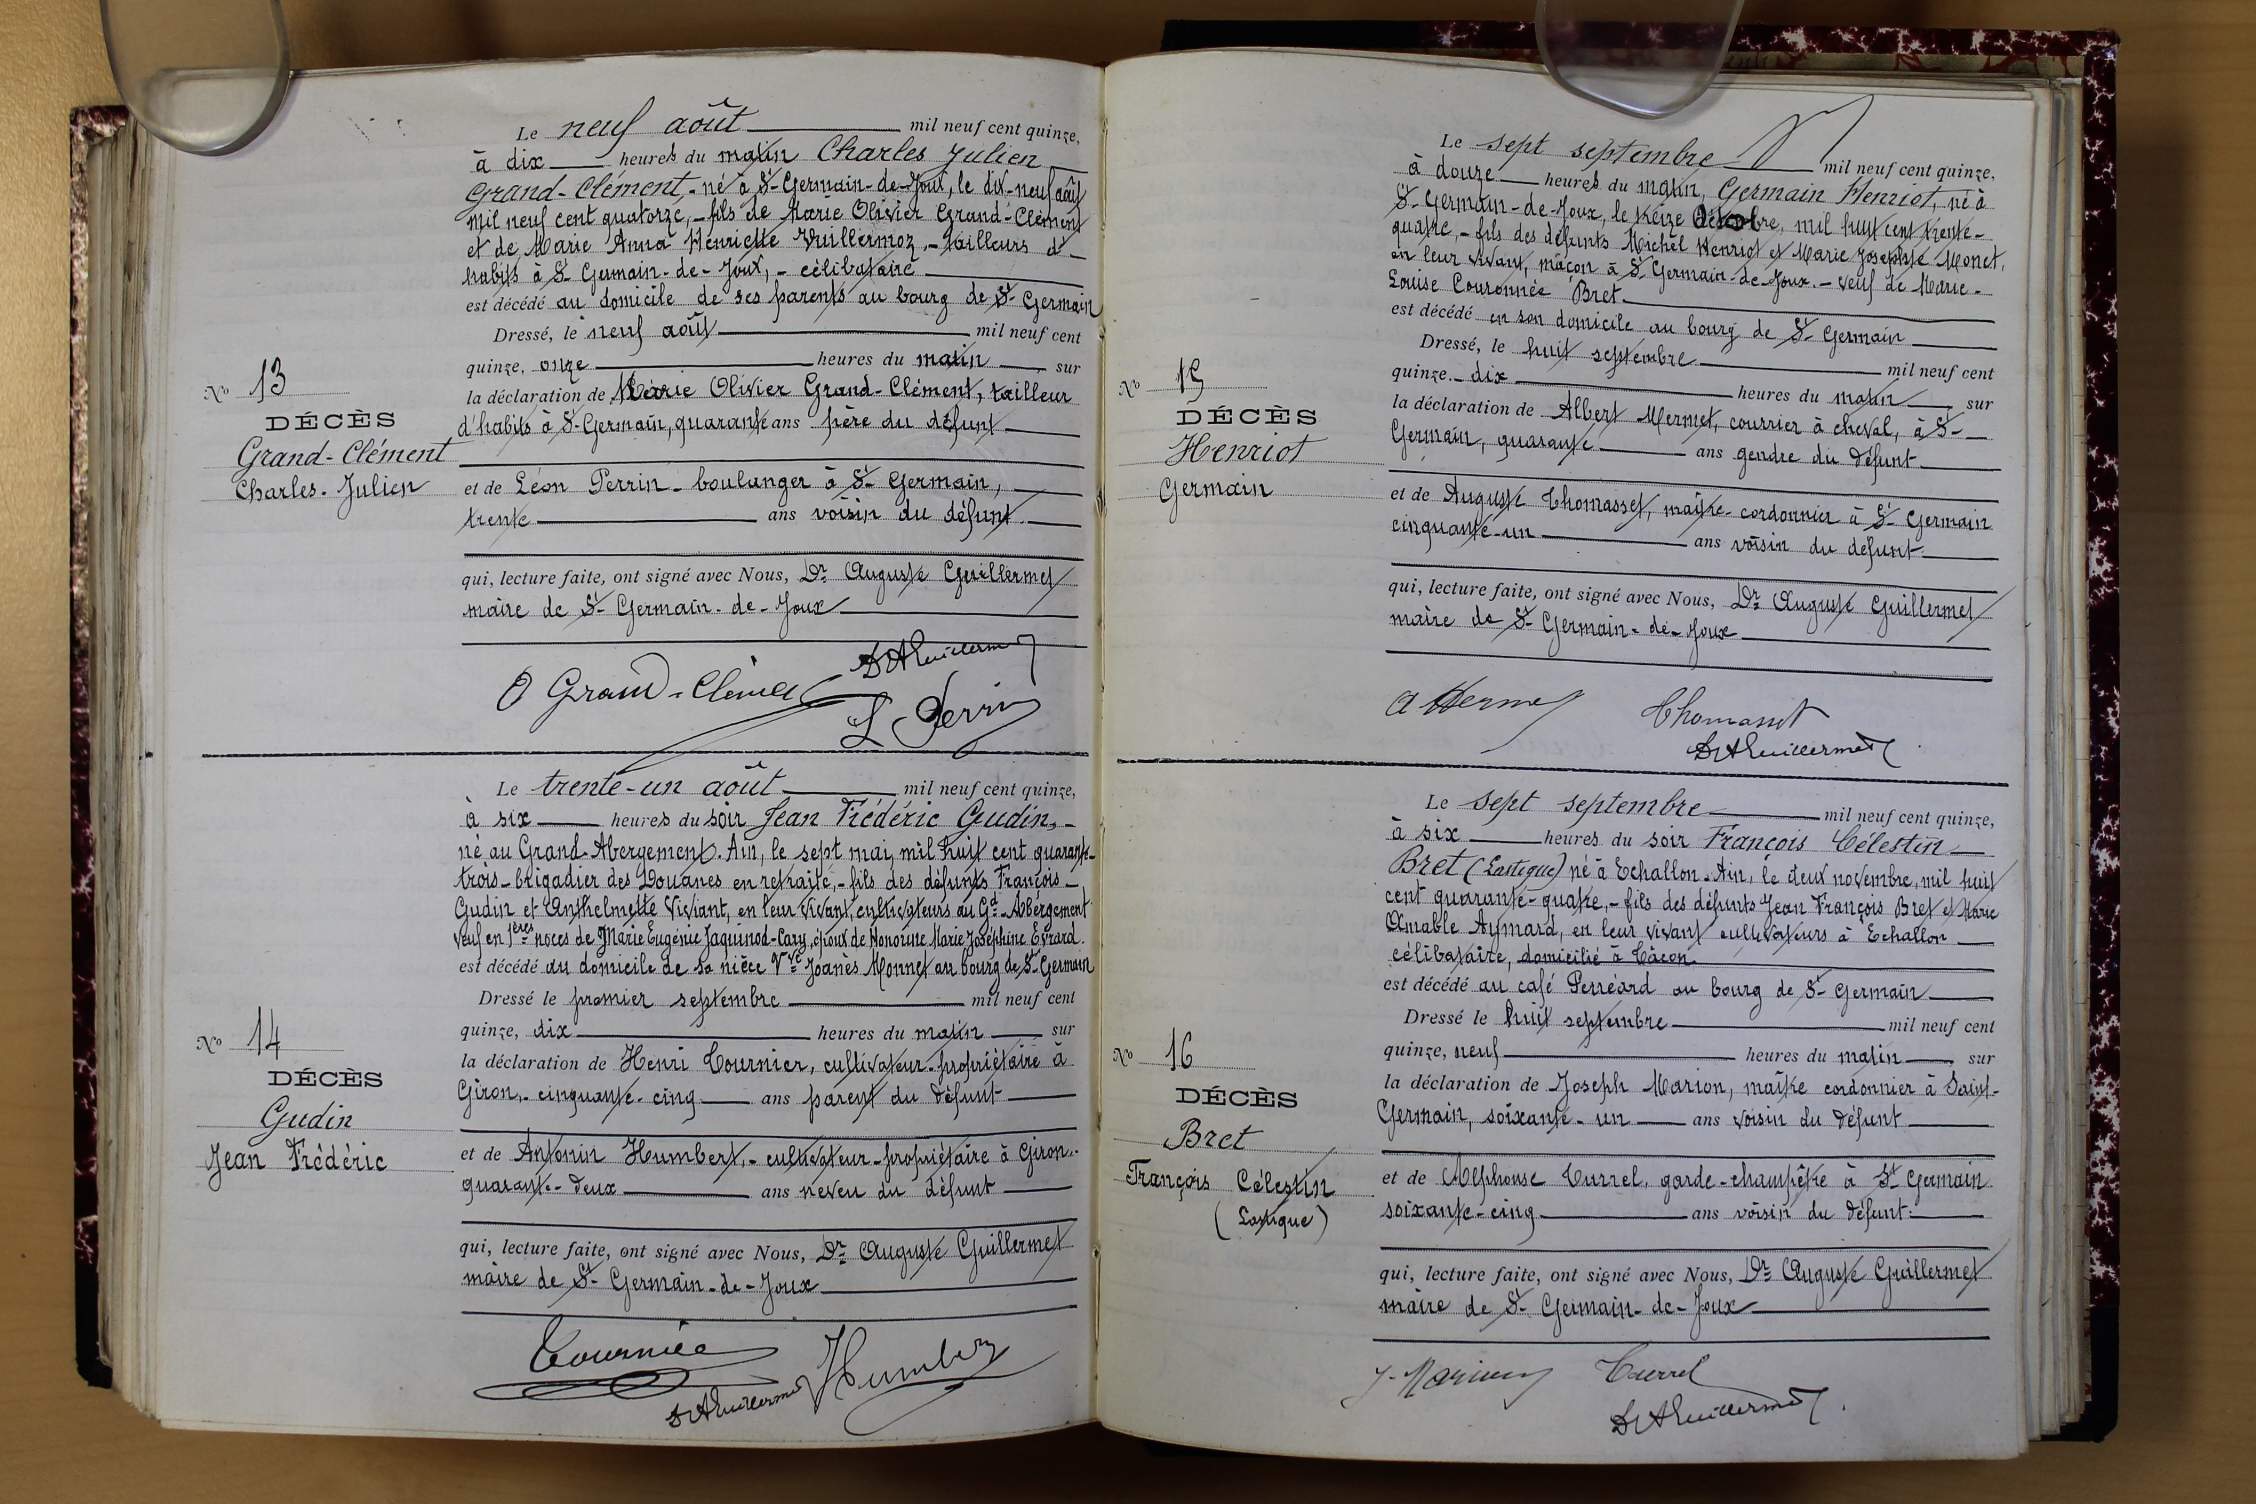 Le neuf août mil neuf cent quinze,
à dix heures du matin Charles Julien
Grand-Clément, - né à St-Germain-de-Joux, le dix-neuf août
mil neuf cent quatorze, - fils de Marie Olivier Grand-Clément
et de Marie Anna Henriette Vuillermoz, - tailleurs d'-
habits à St Germain-de-Joux, - célibataire
est décédé au domicile de ses parents au bourg de St-Germain
Dressé, le neuf août mil neuf cent
quinze, onze heures du matin, sur
la déclaration de Marie Olivier Grand-Clément, tailleur
d'habits à St-Germain, quarante ans père du défunt
et de Léon Perrin - boulanger à St Germain,
trente ans voisin du défunt.
qui, lecture faite, ont signé avec Nous, Dr Auguste Guillermet
maire de St-Germain-de-Joux
No 13
DÉCÈS
Grand-Clément
Charles-Julien
O Grand-Clément
DrAGuillermet
L Perrin
Le trente-un août mil neuf cent quinze,
à six heures du soir Jean Frédéric Gudin, -
né au Grand-Abergement. Ain, le sept mai, mil huit cent quarante-
trois - brigadier des Douanes en retraite, - fils des défunts François
Gudin et Anthelmette Viviant, en leur vivant, cultivateurs au Gd-Abergement
veuf en 1ères noces de Marie Eugénie Jaquinod-Cary, époux de Honorine Marie Joséphine Evrard.
est décédé au domicile de sa nièce Vve Joanès Monnet au bourg de St-Germain
Dressé le premier septembre mil neuf cent
quinze, dix heures du matin sur
la déclaration de Henri Tournier, cultivateur-propriétaire à
Giron, - cinquante-cinq ans parent du défunt
et de Antonin Humbert, - cultivateur-propriétaire à Giron.
quarante-deux ans neveu du défunt
qui, lecture faite, ont signé avec Nous, Dr Auguste Guillermet
maire de St-Germain-de-Joux
No 14
DÉCÈS
Gudin
Jean Frédéric
Tournier
DrAGuillermet
Humbert
Le sept septembre mil neuf cent quinze,
à douze heures du matin, Germain Henriot, né à
St-Germain-de-Joux, le treize Octobre, mil huit cent trente-
quatre, - fils des défunts Michel Henriot et Marie Josephte Monet,
en leur vivant, maçon à St Germain-de-Joux. - veuf de Marie-
Louise Couronnée Bret
est décédé en son domicile au bourg de St-Germain
Dressé, le huit septembre mil neuf cent
quinze. - dix heures du matin, sur
la déclaration de Albert Mermet, courrier à cheval, à St-
Germain, quarante ans gendre du défunt
et de Auguste Thomasset, maître-cordonnier à St-Germain
cinquante-un ans voisin du défunt.
qui, lecture faite, ont signé avec Nous, Dr Auguste Guillermet
maire de St-Germain-de-Joux
No 15
DÉCÈS
Henriot
Germain
A Mermet
Thomasset
DrAGuillermet
Le sept septembre mil neuf cent quinze,
à six heures du soir François Célestin
Bret (Lastique) né à Echallon. Ain, le deux novembre, mil huit
cent quarante-quatre, - fils des défunts Jean François Bret et Marie
Amable Aymard, en leur vivant cultivateurs à Echallon
célibataire, domicilié à Tâcon.
est décédé au café Perréard au bourg de St-Germain
Dressé le huit septembre mil neuf cent
quinze, neuf heures du matin, sur
la déclaration de Joseph Marion, maître cordonnier à Saint-
Germain, soixante-un ans voisin du défunt
et de Alphonse Turrel, garde-champêtre à St Germain
soixante-cinq ans voisin du défunt.
qui, lecture faite, ont signé avec Nous, Dr Auguste Guillermet
maire de St-Germain-de-Joux
No 16
DÉCÈS
Bret
François Célestin
(Lastique)
J. Marion
Turrel
DrAGuillermet